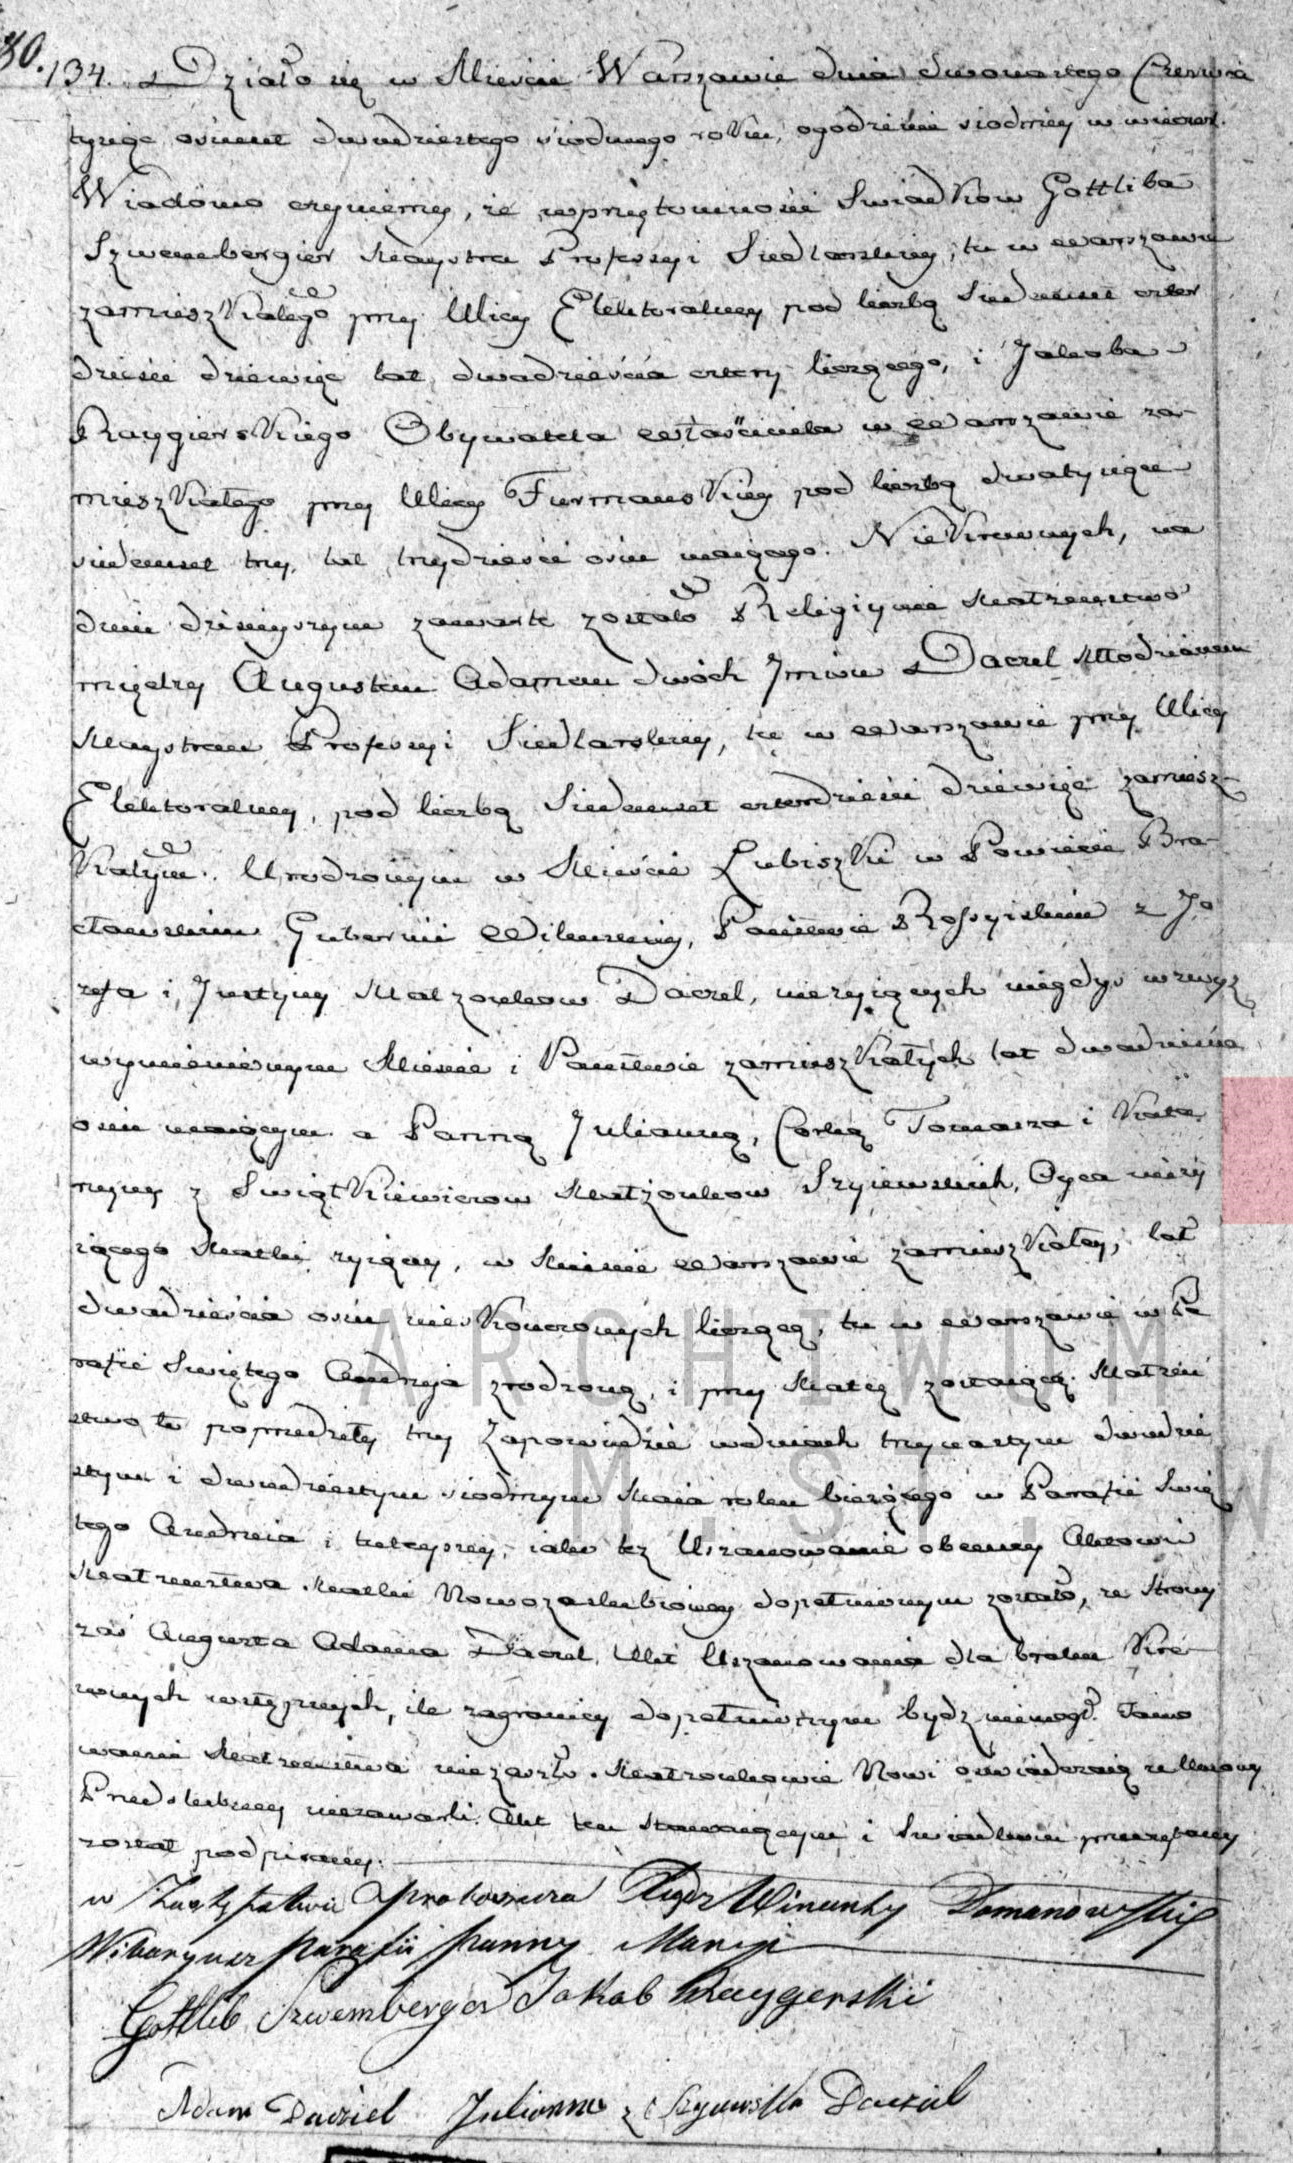 80.
134. Działo się w Mieście Warszawie dnia Czerwca
tysiąc osmset dwudziestego siodmego roku, ogodzinie siodmey w wieczor.
Wiadomo czyniemy, że wprzytomności Swiadkow Gottliba
Szwembergier Maystra Professyi Siedlarskiey, tu w Warszawie
zamieszkałego przy Ulicy Elektoralney pod liczbą Siedmset czter
dzieści dziewięć lat dwadzieścia cztery liczącego, i Jakoba
Raygierskiego Obywatela właściciela w Warszawie za-
mieszkałego przy Ulicy Furmanskiey pod liczbą dwatysiące
siedmset trzy, lat trzydzieści osm maiącego. Niekrewnych, na
dniu dzisieyszym zawarte zostało Religiyne Małżeństwo
między Augustem Adamem dwoch Imion Daczel Młodzianem
Maystrem Professyi Siedlarskiey, tu w Warszawie przy Ulicy
Elektoralney, pod liczbą Siedmset czterdzieści dziewięć zamiesz-
kałym. Urodzonym w Mieście Łubiszki w Powiecie Bra-
cławskim Gubernii Wilenskiey, Państwie Rossyiskim z Jó
zefa i Justyny Małżonkow Daczel, nieżyiących niegdys wzwyż
wymienionym Mieście i Państwie zamieszkałych lat dwadzieścia
osm maiącym. a Panną Julianną, Corką Tomasza i Kata
rzyny z Swiątkiewiczow Małżonkow Szyiewskich, Oyca nieży
iącego Matki żyiącey, w Mieście Warszawie zamieszkałey, lat
dwadzieścia osm nieskonczonych liczącą, tu w Warszawie w Pa
rafii Swiętego Andrzeja zrodzoną, i przy Matce zostaiącą. Małżeń
stwo to poprzedziły trzy Zapowiedzie wdniach trzynastym dwudzie
stym i dwudziestym siodmym Maia roku bieżącego w Parafii Swię
tego Andrzeia i tuteyszey, iako też Uszanowanie obecney Aktowi
Małżeństwa Matki Nowozaslubioney dopełnionym zostało, ze Strony
zaś Augusta Adama Daczel, Akt Uszanowania dla braku Kre-
wnych wstępnych, ile zagranicy dopełnionym bydź niemogł. Tamo
wanie Małżeństwa niezaszło. Małżonkowie Nowi oswiadczaią ze Umowy
Przedslubney niezawarli. Akt ten Stawaiącym i Swiadkom przeczytany
został podpisany.
w Zastępstwie Proboszcza Domanowski
Wikaryusz Parafii Panny Maryi
Gottlib Szwemberger Jakob Raygerski
Adam Dacziel Julianna z Szyiewska Dacziel
ARCHIWUM
M. ST. W